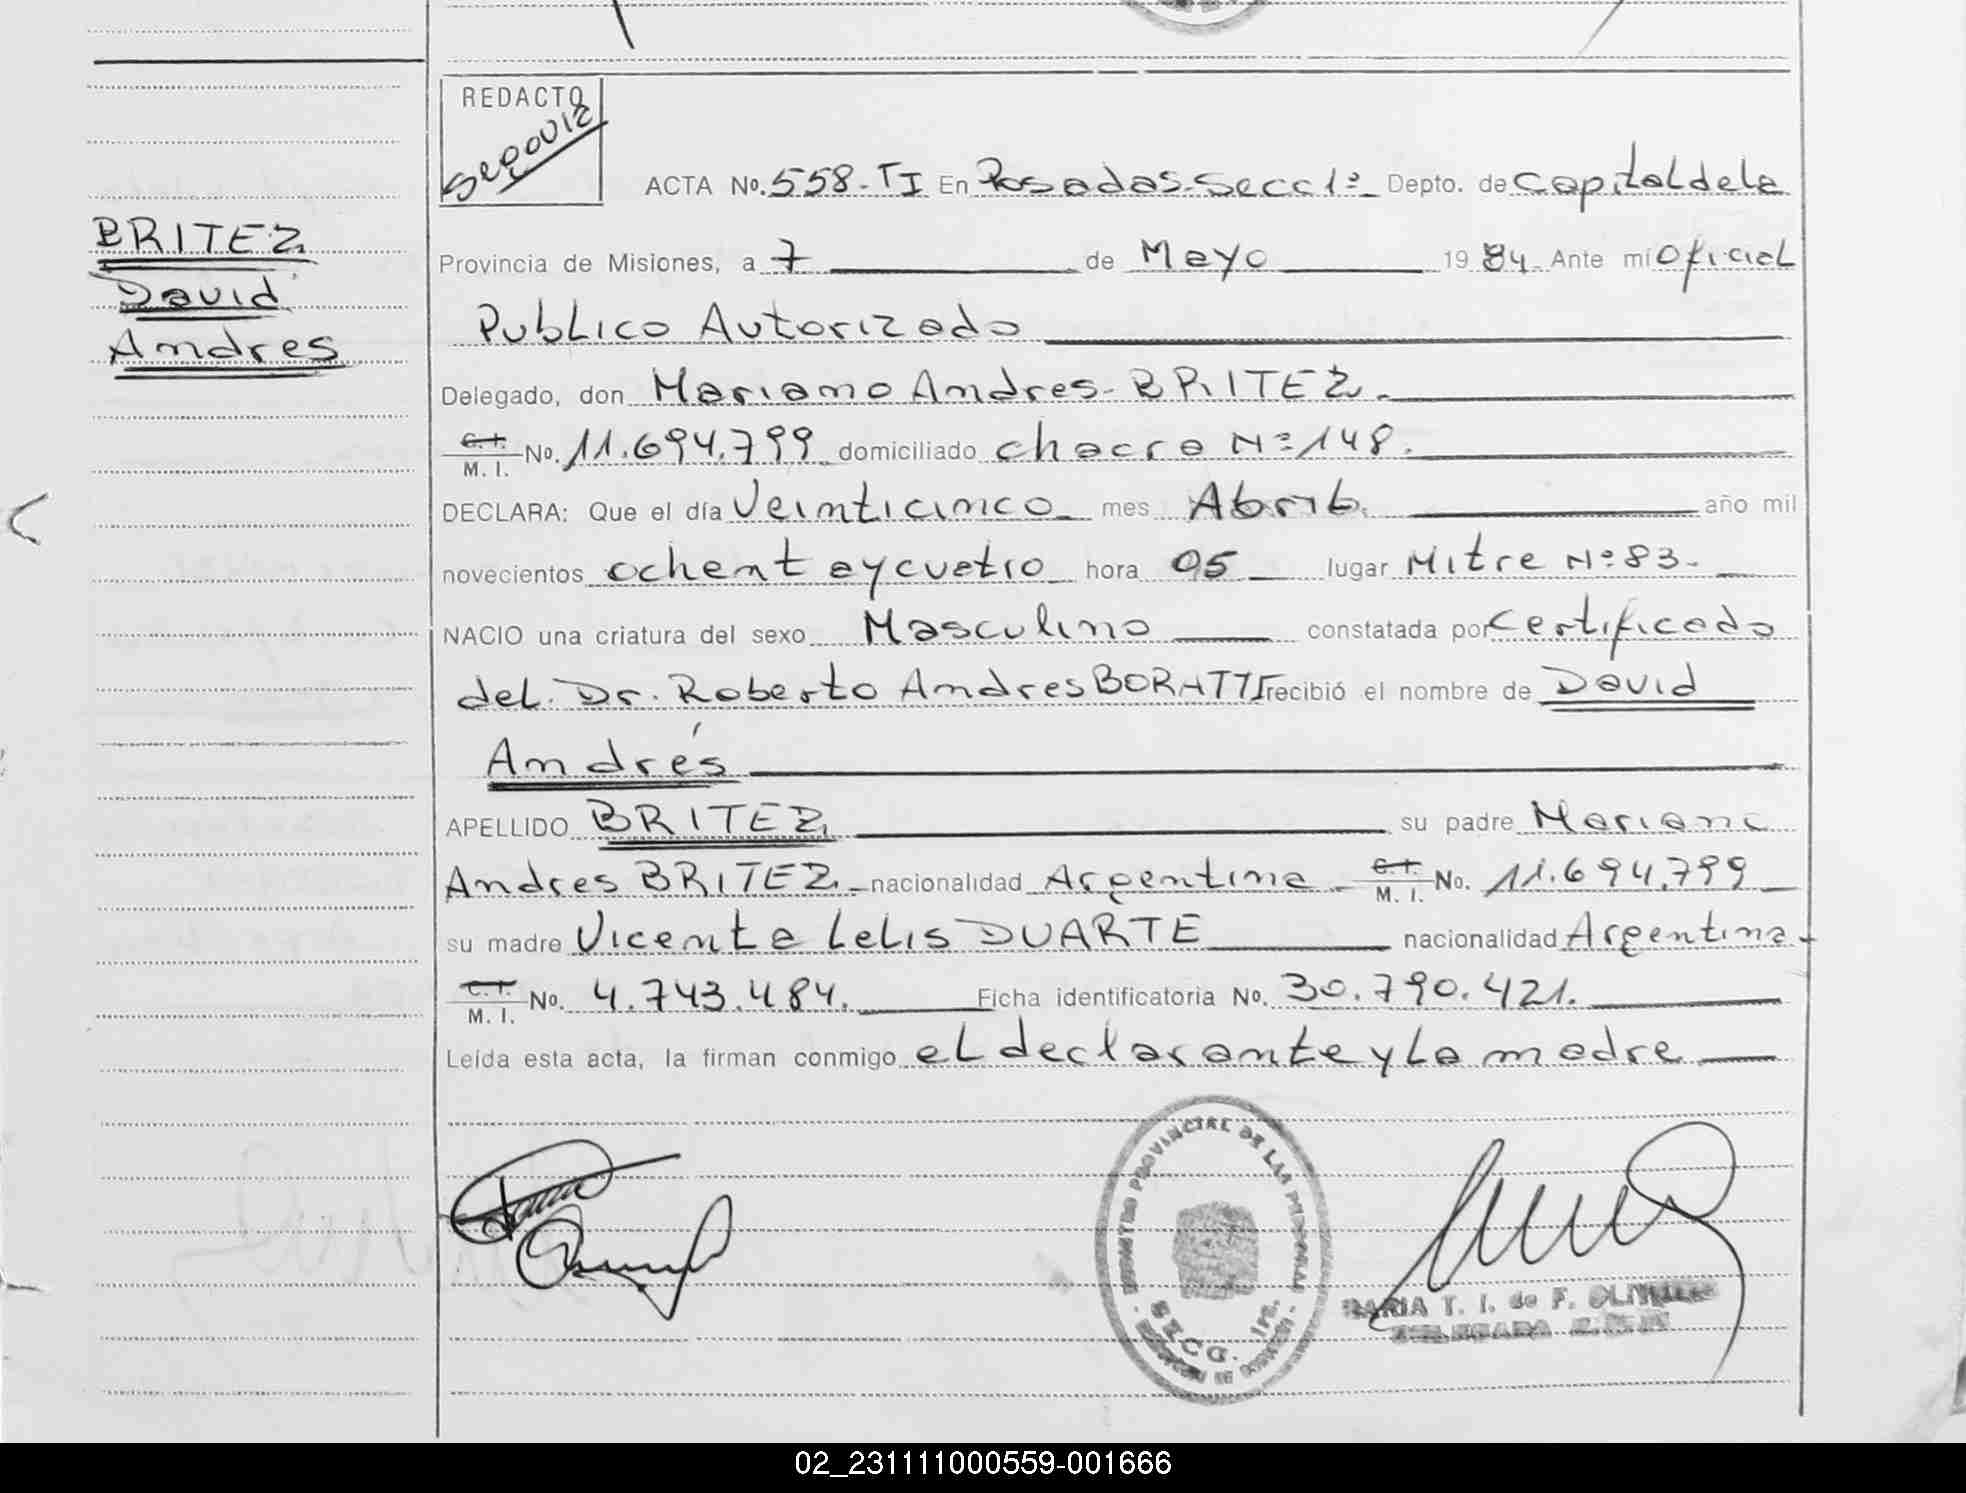 REDACTO
Segovia
ACTA No. 558-TI En Posadas-Secc 1ª Depto. de Capital de la
BRITEZ
David
Andres
Provincia de Misiones, a 7 de Mayo 1984 Ante mí Oficial
Publico Autorizado
Delegado, don Mariano Andres-BRITEZ.
C.I. M. I. No. 11.694.799 domiciliado chacra Nº 148.
DECLARA: Que el día Veinticinco mes Abril año mil
novecientos ochenta y cuatro hora 05 lugar Mitre Nº 83.
NACIO una criatura del sexo Masculino constatada por Certificado
del. Dr. Roberto Andres BORATTI recibió el nombre de David
Andrés
APELLIDO BRITEZ su padre Mariano
Andres BRITEZ nacionalidad Argentina C.I. M. I. No. 11.694.799
su madre Vicenta Lelis DUARTE nacionalidad Argentina
C.I. M. I. No. 4.743.484. Ficha identificatoria No. 30.790.421.
Leída esta acta, la firman conmigo el declarante y la madre
PROVINCIAL DE LAS PERSONAS
SECC. 1ra.
MARIA T. I. de F. OLIVEIRA
DELEGADA
02_231111000559-001666